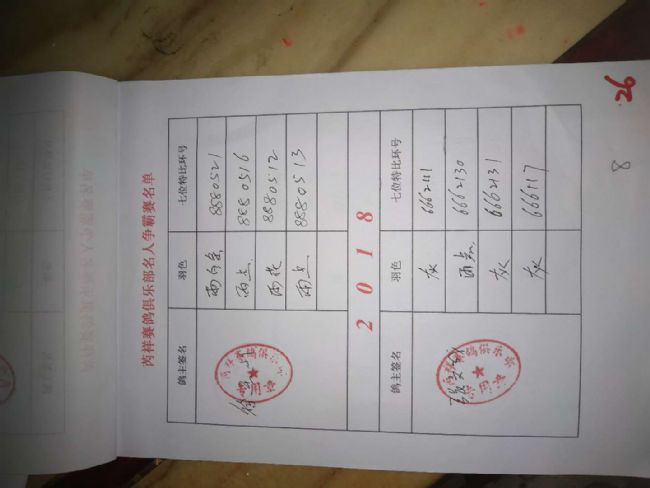 芮样赛鸽俱乐部名人争霸赛名单
鸽主签名 羽色 七位特比环号
雨白条 8880521
雨点 8880516
雨花 8880512
雨点 8880513
2018
鸽主签名 羽色 七位特比环号
灰
雨点 6662130
灰 6662131
灰
26
8